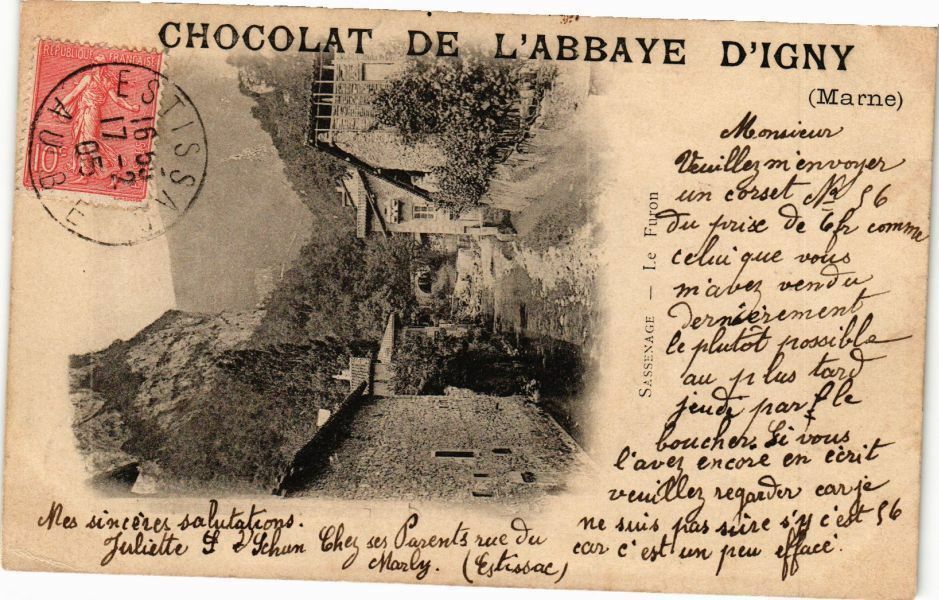 CHOCOLAT DE L'ABBAYE D'IGNY
(Marne)
RÉPUBLIQUE FRANÇAISE
10c
ESTISSAC
16 50
17 - 2
05
AUBE
SASSENAGE — Le Furon
Monsieur
Veuillez m'envoyer
un corset No 56
du prix de 6fr comme
celui que vous
m'avez vendu
dernièrement
le plutôt possible
au plus tard
jeudi par le
boucher. Si vous
l'avez encore en écrit
veuillez regarder car je
ne suis pas sûre s'y c'est 56
car c'est un peu effacé.
Mes sincères salutations.
Juliette Chez ses Parents rue du
Marly. (Estissac)